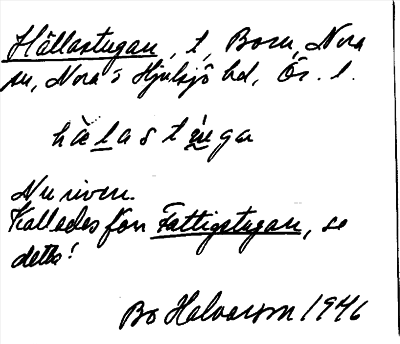 Hällastugan, t, Born, Nora
sn, Nora o Hjulsjö hd, Ör. l.
hälastu̇ga
Nu riven.
Kallades förr Fattigstugan, se
detta!
Bo Halvarson 1946